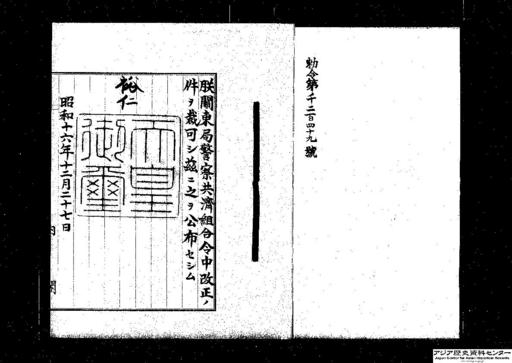 勅令第千二百四十九號
朕關東局警察共濟組合令中改正ノ
件ヲ裁可シ茲ニ之ヲ公布セシム
裕仁
天皇
御璽
昭和十六年十二月二十七日
内閣
アジア歴史資料センター
Japan Center for Asian Historical Records